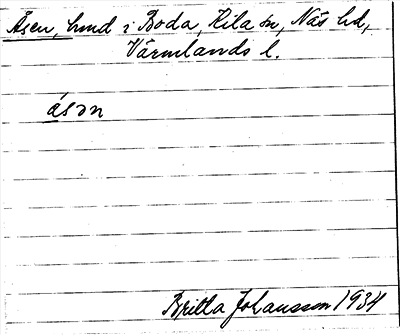 Åsen, hmd i Boda, Kila sn, Näs hd,
Värmlands l.
åsən
Britta Johansson 1934